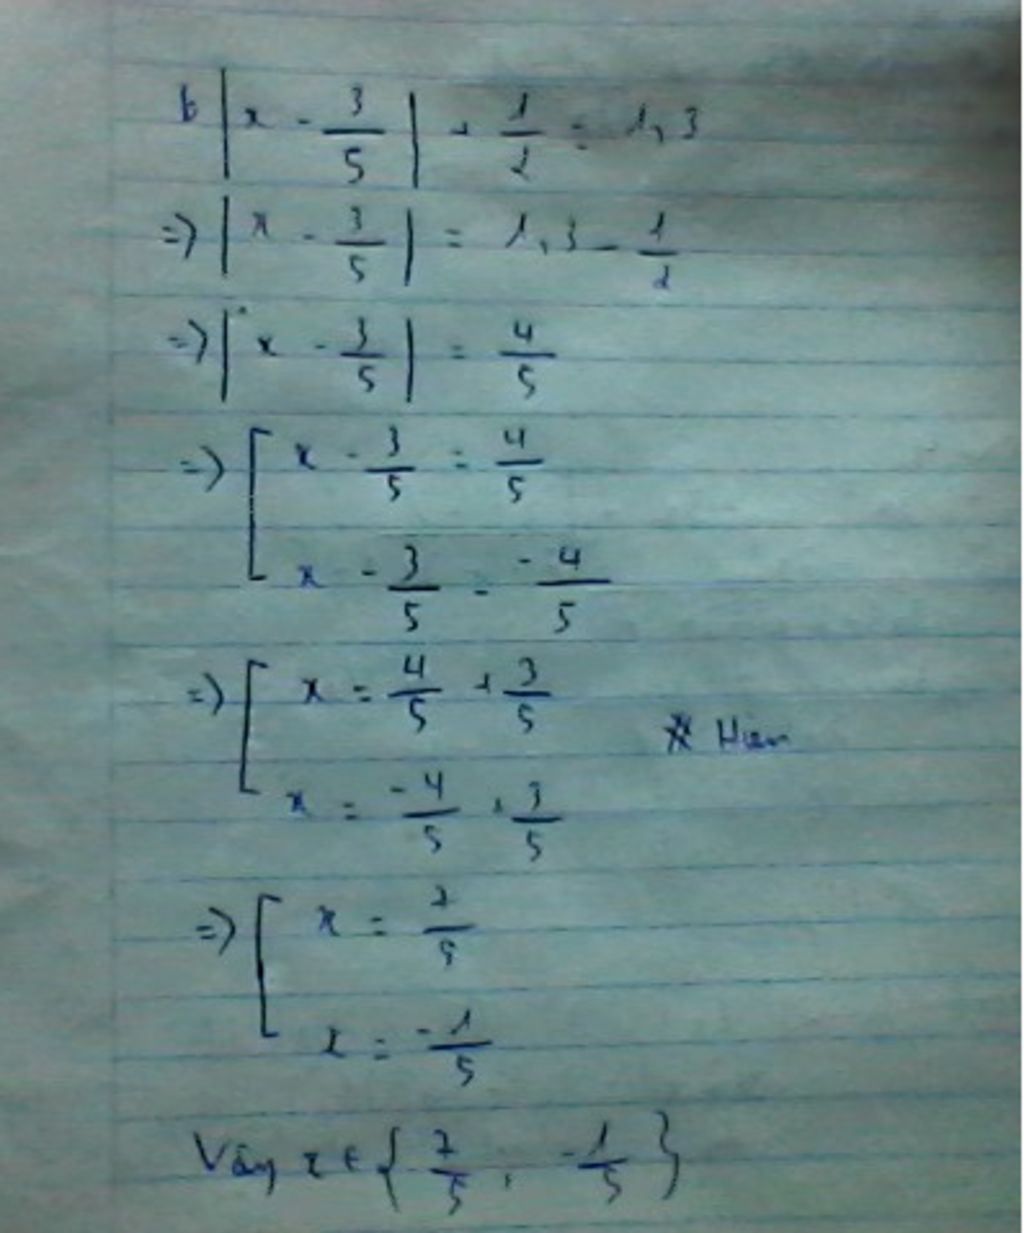 b |x - 3/5| + 1/2 = 1,3
=> |x - 3/5| = 1,3 - 1/2
=> |x - 3/5| = 4/5
=> [ x - 3/5 = 4/5
x - 3/5 = -4/5
=> [ x = 4/5 + 3/5
x = -4/5 + 3/5
=> [ x = 7/5
x = -1/5
Vậy x ∈ { 7/5 , -1/5 }